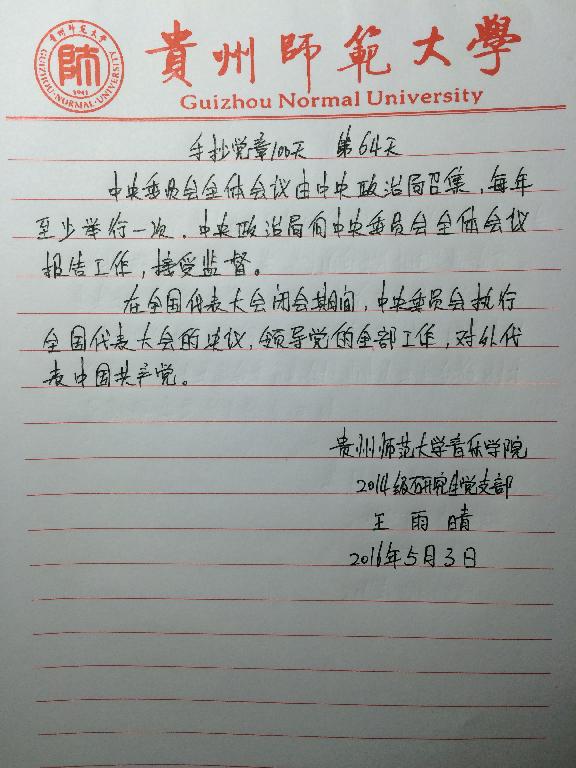 貴州師範大學
貴州師范大學
GUIZHOU·NORMAL·UNIVERSITY
師
1941
Guizhou Normal University
手抄党章100天 第64天
中央委员会全体会议由中央政治局召集,每年
至少举行一次。中央政治局向中央委员会全体会议
报告工作,接受监督。
在全国代表大会闭会期间,中央委员会执行
全国代表大会的决议,领导党的全部工作,对外代
表中国共产党。
贵州师范大学音乐学院
2014级研究生党支部
王雨晴
2016年5月3日